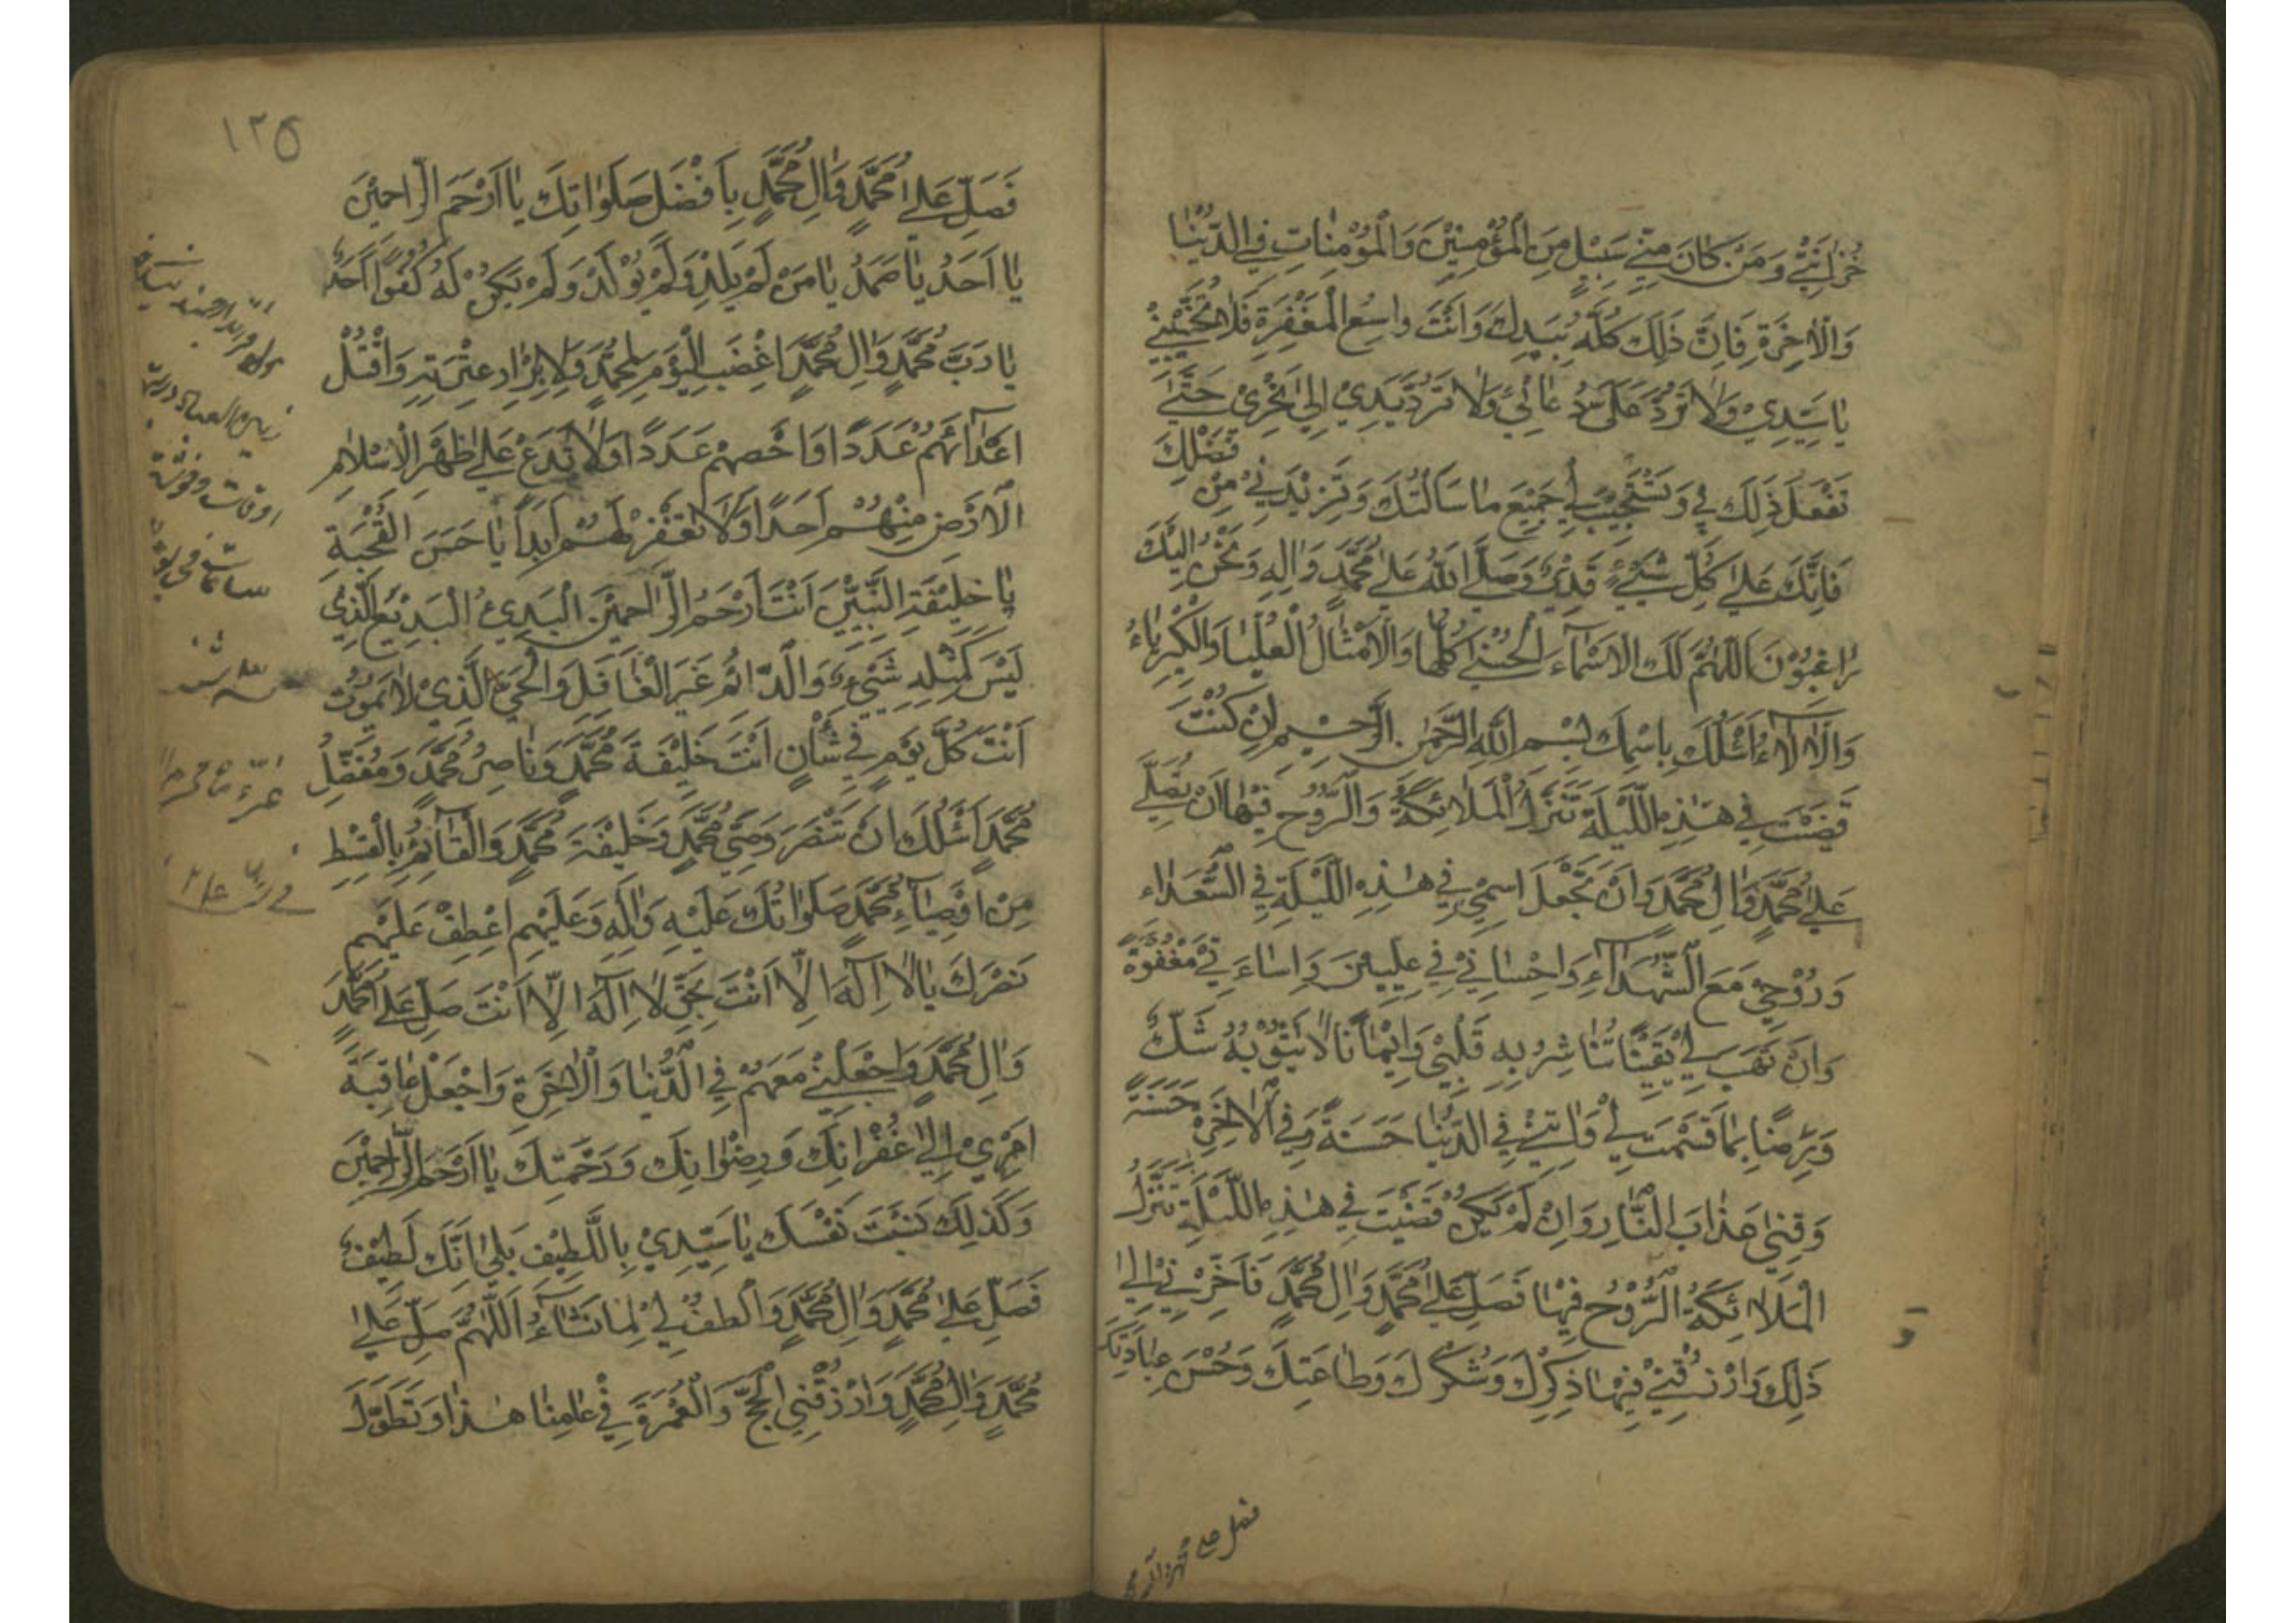 خُزانَتِيْ وَمَنْ كانَ مِنّي بِسَبِيْلٍ مِنَ الْمُؤْمِنِيْنَ وَالْمُؤْمِناتِ فِي الدُّنْيا
وَالْاٰخِرَةِ فَاِنَّ ذٰلِكَ كُلَّهُ بِيَدِكَ وَاَنْتَ واسِعُ الْمَغْفِرَةِ فَلا تُخَيِّبْنِيْ
يا سَيِّدِيْ وَلا تَرُدَّ عَلَيَّ دُعائِيْ وَلا تَرُدَّ يَدِيْ اِلىٰ نَحْرِيْ حَتّىٰ
تَفْعَلَ ذٰلِكَ بِيْ وَتَسْتَجِيْبَ لِيْ جَمِيْعَ ما سَاَلْتُكَ وَتَزِيْدَنِيْ مِنْ فَضْلِكَ
فَاِنَّكَ عَلىٰ كُلِّ شَيْءٍ قَدِيْرٌ وَصَلَّى اللهُ عَلىٰ مُحَمَّدٍ وَاٰلِهِ وَنَحْنُ اِلَيْكَ
راغِبُوْنَ اَللّٰهُمَّ لَكَ الْاَسْماءُ الْحُسْنىٰ كُلُّها وَالْاَمْثالُ الْعُلْيا وَالْكِبْرِياءُ
وَالْاٰلاءُ اَسْئَلُكَ بِاسْمِكَ بِسْمِ اللهِ الرَّحْمٰنِ الرَّحِيْمِ اِنْ كُنْتَ
قَضَيْتَ فِيْ هٰذِهِ اللَّيْلَةِ تَنَزُّلَ الْمَلائِكَةِ وَالرُّوْحِ فِيْها اَنْ تُصَلِّيَ
عَلىٰ مُحَمَّدٍ وَاٰلِ مُحَمَّدٍ وَاَنْ تَجْعَلَ اسْمِيْ فِيْ هٰذِهِ اللَّيْلَةِ فِي السُّعَداءِ
وَرُوْحِيْ مَعَ الشُّهَداءِ وَاِحْسانِيْ فِيْ عِلِّيِّيْنَ وَاِساءَتِيْ مَغْفُوْرَةً
وَاَنْ تَهَبَ لِيْ يَقِيْنًا تُباشِرُ بِهِ قَلْبِيْ وَاِيْمانًا لا يَشُوْبُهُ شَكٌّ
وَتَرْضًا بِما قَسَمْتَ لِيْ وَاٰتِنِيْ فِي الدُّنْيا حَسَنَةً وَفِي الْاٰخِرَةِ حَسَنَةً
وَقِنِيْ عَذابَ النّارِ وَاِنْ لَمْ تَكُنْ قَضَيْتَ فِيْ هٰذِهِ اللَّيْلَةِ تَنَزُّلَ
الْمَلائِكَةُ الرُّوْحُ فِيْها فَصَلِّ عَلىٰ مُحَمَّدٍ وَاٰلِ مُحَمَّدٍ فَاَخِّرْنِيْ اِلىٰ
ذٰلِكَ وَارْزُقْنِيْ فِيْها ذِكْرَكَ وَشُكْرَكَ وَطاعَتَكَ وَحُسْنَ عِبادَتِكَ
فصل على محمد وآل محمد
١٢٥
فَصَلِّ عَلىٰ مُحَمَّدٍ وَاٰلِ مُحَمَّدٍ بِاَفْضَلِ صَلَواتِكَ يا اَرْحَمَ الرّاحِمِيْنَ
يا اَحَدُ يا صَمَدُ يا مَنْ لَمْ يَلِدْ وَلَمْ يُوْلَدْ وَلَمْ يَكُنْ لَهُ كُفُوًا اَحَدٌ
يا رَبَّ مُحَمَّدٍ وَاٰلِ مُحَمَّدٍ اِغْضَبِ الْيَوْمَ لِمُحَمَّدٍ وَلِاَبْرارِ عِتْرَتِهِ وَاقْتُلْ
اَعْداءَهُمْ عَدَدًا وَاحْصِهِمْ عَدَدًا وَلا تَدَعْ عَلىٰ ظَهْرِ الْاِسْلامِ
الْاَرْضِ مِنْهُمْ اَحَدًا وَلا تَغْفِرْ لَهُمْ اَبَدًا يا حَسَنَ الصُّحْبَةِ
يا خَلِيْفَةَ النَّبِيِّيْنَ اَنْتَ اَرْحَمُ الرّاحِمِيْنَ الْبَدِيْءُ الْبَدِيْعُ الَّذِيْ
لَيْسَ كَمِثْلِهِ شَيْءٌ وَالدّائِمُ غَيْرُ الْغافِلِ وَالْحَيُّ الَّذِيْ لا يَمُوْتُ
اَنْتَ كُلَّ يَوْمٍ فِيْ شَأْنٍ اَنْتَ خَلِيْفَةُ مُحَمَّدٍ وَناصِرُ مُحَمَّدٍ وَمُفَضِّلُ
مُحَمَّدٍ اَسْئَلُكَ اَنْ تَنْصُرَ وَصِيَّ مُحَمَّدٍ وَخَلِيْفَةَ مُحَمَّدٍ وَالْقائِمَ بِالْقِسْطِ
مِنْ اَوْصِياءِ مُحَمَّدٍ صَلَواتُكَ عَلَيْهِ وَاٰلِهِ وَعَلَيْهِمْ اِعْطِفْ عَلَيْهِمْ
نَصْرَكَ يا لا اِلٰهَ اِلّا اَنْتَ بِحَقِّ لا اِلٰهَ اِلّا اَنْتَ صَلِّ عَلىٰ مُحَمَّدٍ
وَاٰلِ مُحَمَّدٍ وَاجْعَلْنِيْ مَعَهُمْ فِي الدُّنْيا وَالْاٰخِرَةِ وَاجْعَلْ عاقِبَةَ
اَمْرِيْ اِلىٰ غُفْرانِكَ وَرِضْوانِكَ وَرَحْمَتِكَ يا اَرْحَمَ الرّاحِمِيْنَ
وَكَذٰلِكَ نَسَبْتَ نَفْسَكَ يا سَيِّدِيْ بِاللَّطِيْفِ بَلىٰ اِنَّكَ لَطِيْفٌ
فَصَلِّ عَلىٰ مُحَمَّدٍ وَاٰلِ مُحَمَّدٍ وَالْطُفْ لِيْ لِما تَشاءُ اَللّٰهُمَّ صَلِّ عَلىٰ
مُحَمَّدٍ وَاٰلِ مُحَمَّدٍ وَارْزُقْنِي الْحَجَّ وَالْعُمْرَةَ فِيْ عامِنا هٰذا وَتَطَوَّلْ